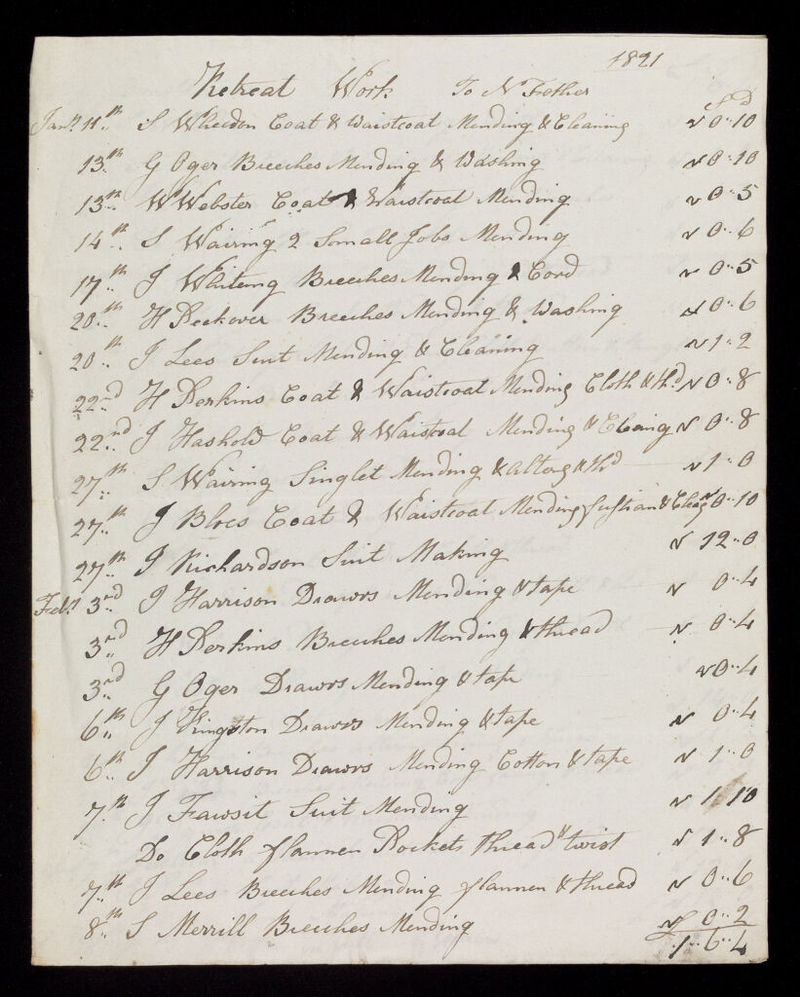 1821
Retreat Work To N Frether
S D
Jany. 11th S Wheldon Coat & Waistcoat Mending & Cleaning 0 " 10
13th G Oger Breeches Mending & Washing 0 " 10
13th W Webster Coat & Waistcoat Mending 0 " 5
14th S Wairing 2 Small Jobs Mending 0 " 6
17th J Whiteing Breeches Mending & Cord 0 " 5
20th H Peckover Breeches Mending & Washing 0 " 6
20th J Lees Suit Mending & Cleaning 1 " 2
22nd H Perkins Coat & Waistcoat Mending Cloth & thd 0 " 8
22nd J Hashold Coat & Waistcoat Mending & Cleaing 0 " 8
27th S Wairing Singlet Mending & Altrg & thd 1 " 0
27th J Bloes Coat & Waistcoat Mending fustian & Cleag 0 " 10
27th J Richardson Suit Making 12 " 0
Feby 3rd J Harrison Drawrs Mending & tape 0 " 4
3rd H Perkins Breeches Mending & thread 0 " 4
3rd G Oger Drawrs Mending & tape 0 " 4
6th J Kingston Drawrs Mending & tape 0 " 4
6th J Harrison Drawrs Mending Cotton & tape 1 " 0
7th J Fawsit Suit Mending 1 " 10
Do Cloth flannen Pockets thread & twist 1 " 8
7th J Lees Breeches Mending flannen & thread 0 " 6
8th S Merrill Breeches Mending 0 " 2
£ 1 " 6 " 4